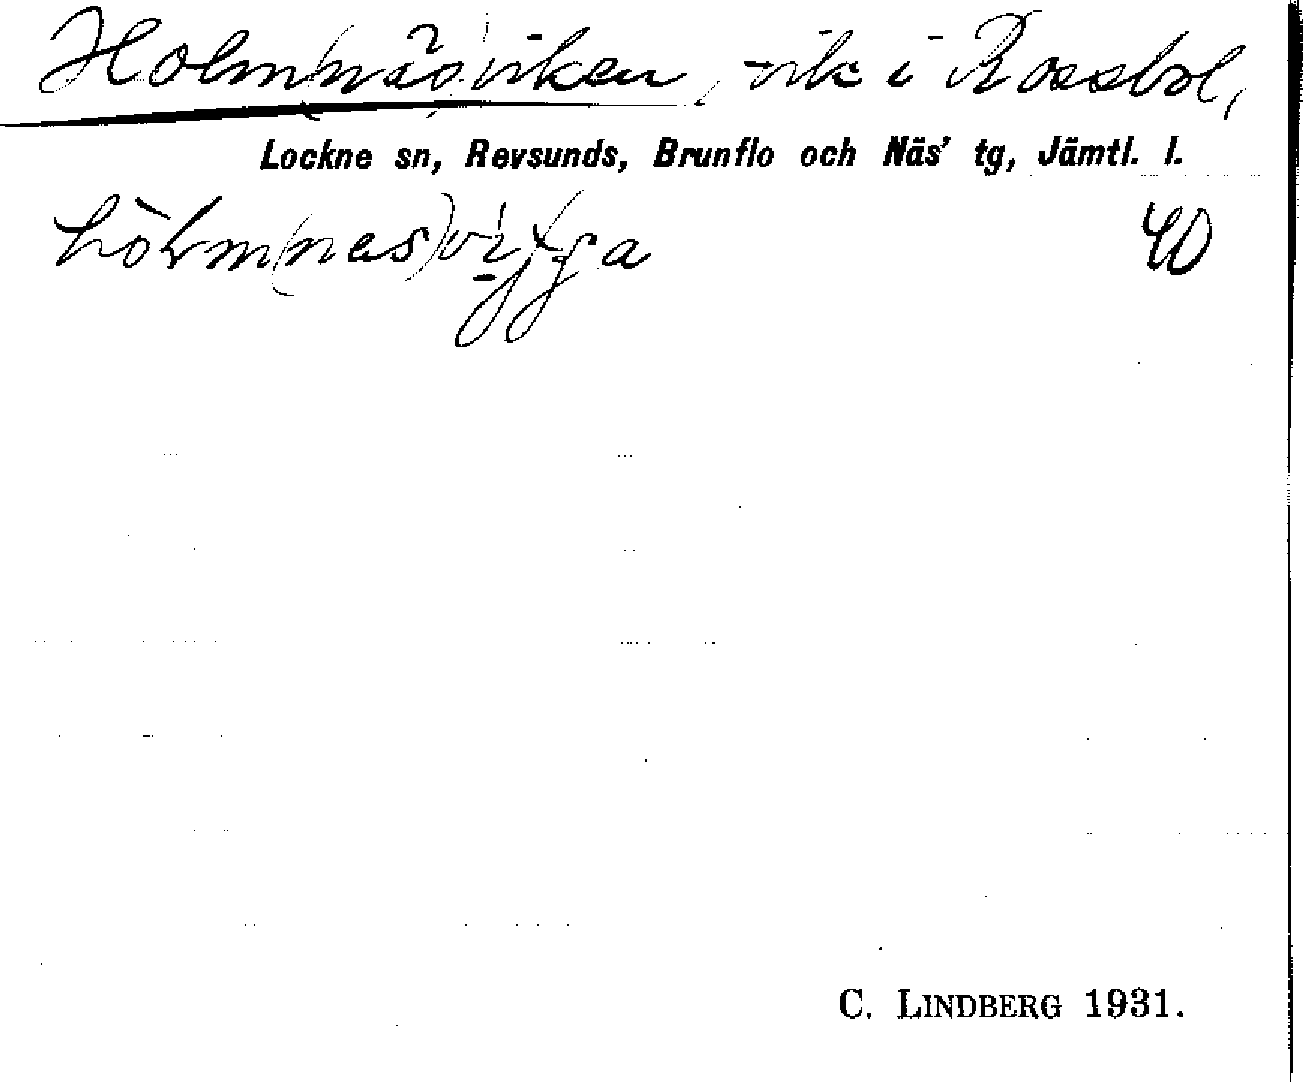 Holm(näs)viken, vik i Rossbol,
Lockne sn, Revsunds, Brunflo och Näs' tg, Jämtl. l.
40
C. LINDBERG 1931.